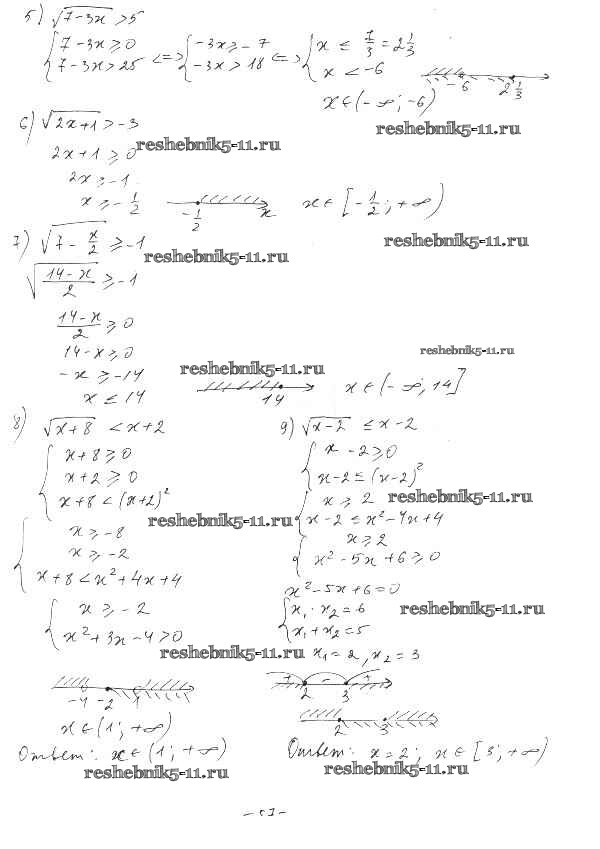 5) √7-3x >5
{7-3x ≥ 0 <=> {-3x ≥ -7 <=> {x ≤ 7/3 = 2 1/3
7-3x > 25 -3x > 18 x < -6
-6 2 1/3
x ∈ (-∞; -6)
reshebnik5-11.ru
6) √2x+1 > -3
reshebnik5-11.ru
2x+1 ≥ 0
2x ≥ -1
x ≥ -1/2
-1/2 x
x ∈ [-1/2; +∞)
7) √7 - x/2 ≥ -1
reshebnik5-11.ru
reshebnik5-11.ru
√14-x/2 ≥ -1
14-x/2 ≥ 0
14-x ≥ 0
reshebnik5-11.ru
-x ≥ -14
reshebnik5-11.ru
x ≤ 14
14
x ∈ (-∞, 14]
8) √x+8 < x+2
{x+8 ≥ 0
x+2 ≥ 0
x+8 < (x+2)²
reshebnik5-11.ru
{x ≥ -8
x ≥ -2
x+8 < x²+4x+4
{x ≥ -2
x²+3x-4 > 0
reshebnik5-11.ru
-4 -2 1
x ∈ (1; +∞)
Ответ: x ∈ (1; +∞)
reshebnik5-11.ru
9) √x-2 ≤ x-2
{x-2 ≥ 0
x-2 ≤ (x-2)²
{x ≥ 2
reshebnik5-11.ru
x-2 ≤ x²-4x+4
{x ≥ 2
x²-5x+6 ≥ 0
x²-5x+6=0
{x₁·x₂=6
reshebnik5-11.ru
x₁+x₂=5
x₁=2, x₂=3
+ - +
2 3
2 3
Ответ: x=2; x ∈ [3; +∞)
reshebnik5-11.ru